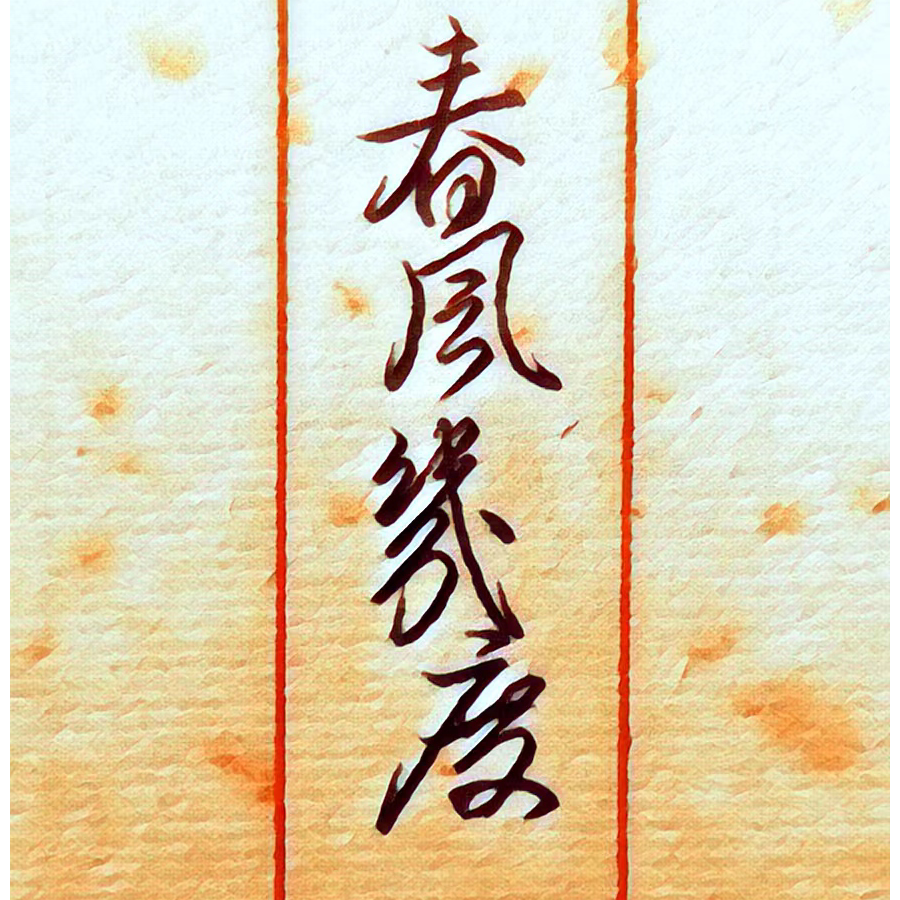 春風幾度